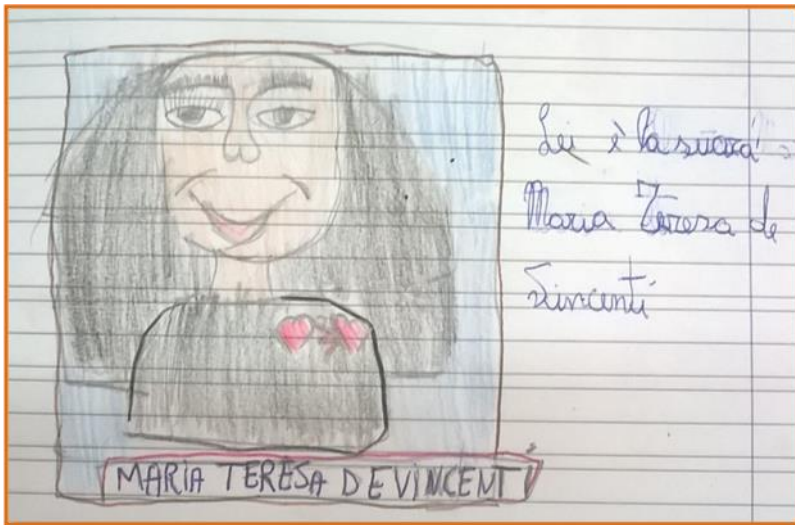 Lei è la suora
Maria Teresa de
Vincenti
MARIA TERESA DE VINCENTI